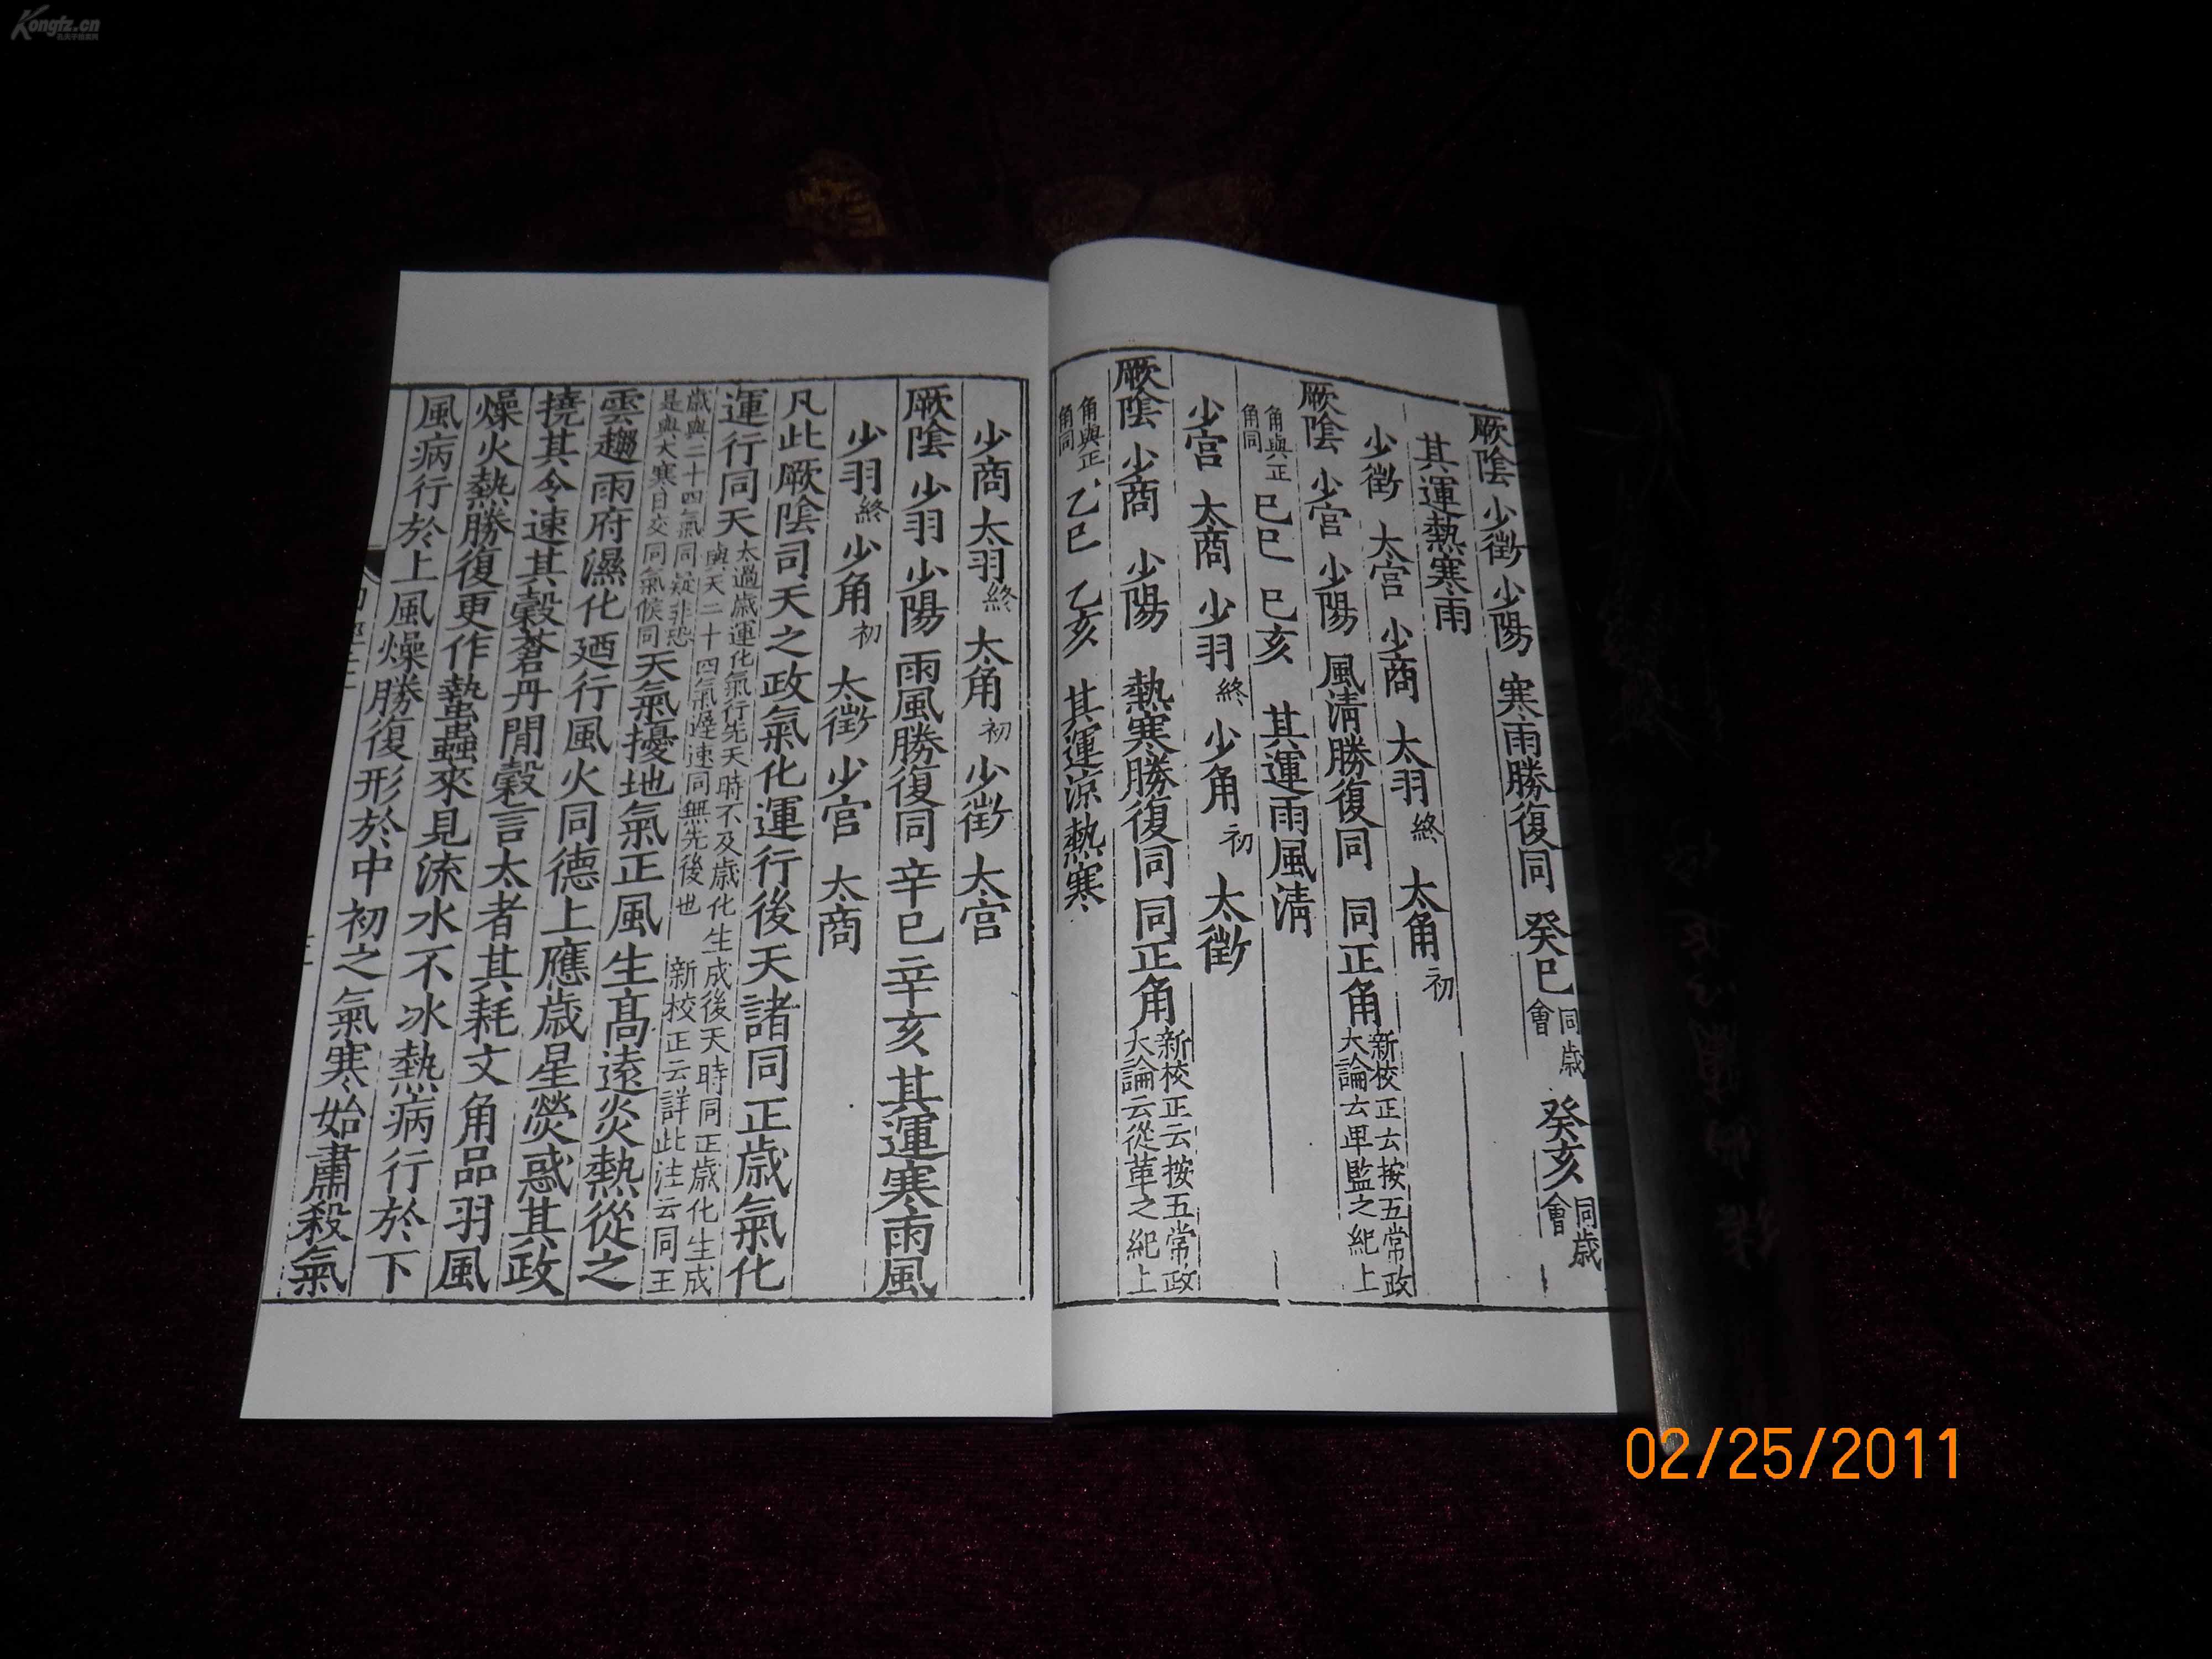 厥陰 少徵 少陽 寒雨勝復同 癸巳 同歲會 癸亥 同歲會
其運熱寒雨
少徵 太宮 少商 太羽 終 太角 初
厥陰 少宮 少陽 風清勝復同 同正角 新校正云按五常政大論云卑監之紀上
角與正角同 己巳 己亥 其運雨風清
少宮 太商 少羽 終 少角 初 太徵
厥陰 少商 少陽 熱寒勝復同 同正角 新校正云按五常政大論云從革之紀上
角與正角同 乙巳 乙亥 其運涼熱寒
少商 太羽 終 太角 初 少徵 太宮
厥陰 少羽 少陽 雨風勝復同 辛巳 辛亥 其運寒雨風
少羽 終 少角 初 太徵 少宮 太商
凡此厥陰司天之政氣化運行後天諸同正歲氣化
運行同天 太過歲運化氣行先天時不及歲化生成後天時同正歲化生成與天二十四氣遲速同無先後也 新校正云詳此注云同王
歲與二十四氣同疑非恐是與大寒日交同氣候同 天氣擾地氣正風生高遠炎熱從之
雲趨雨府濕化廼行風火同德上應歲星熒惑其政
撓其令速其穀蒼丹閒穀言太者其耗文角品羽風
燥火熱勝復更作蟄蟲來見流水不冰熱病行於下
風病行於上風燥勝復形於中 初之氣寒始肅殺氣
Kongfz.cn
02/25/2011